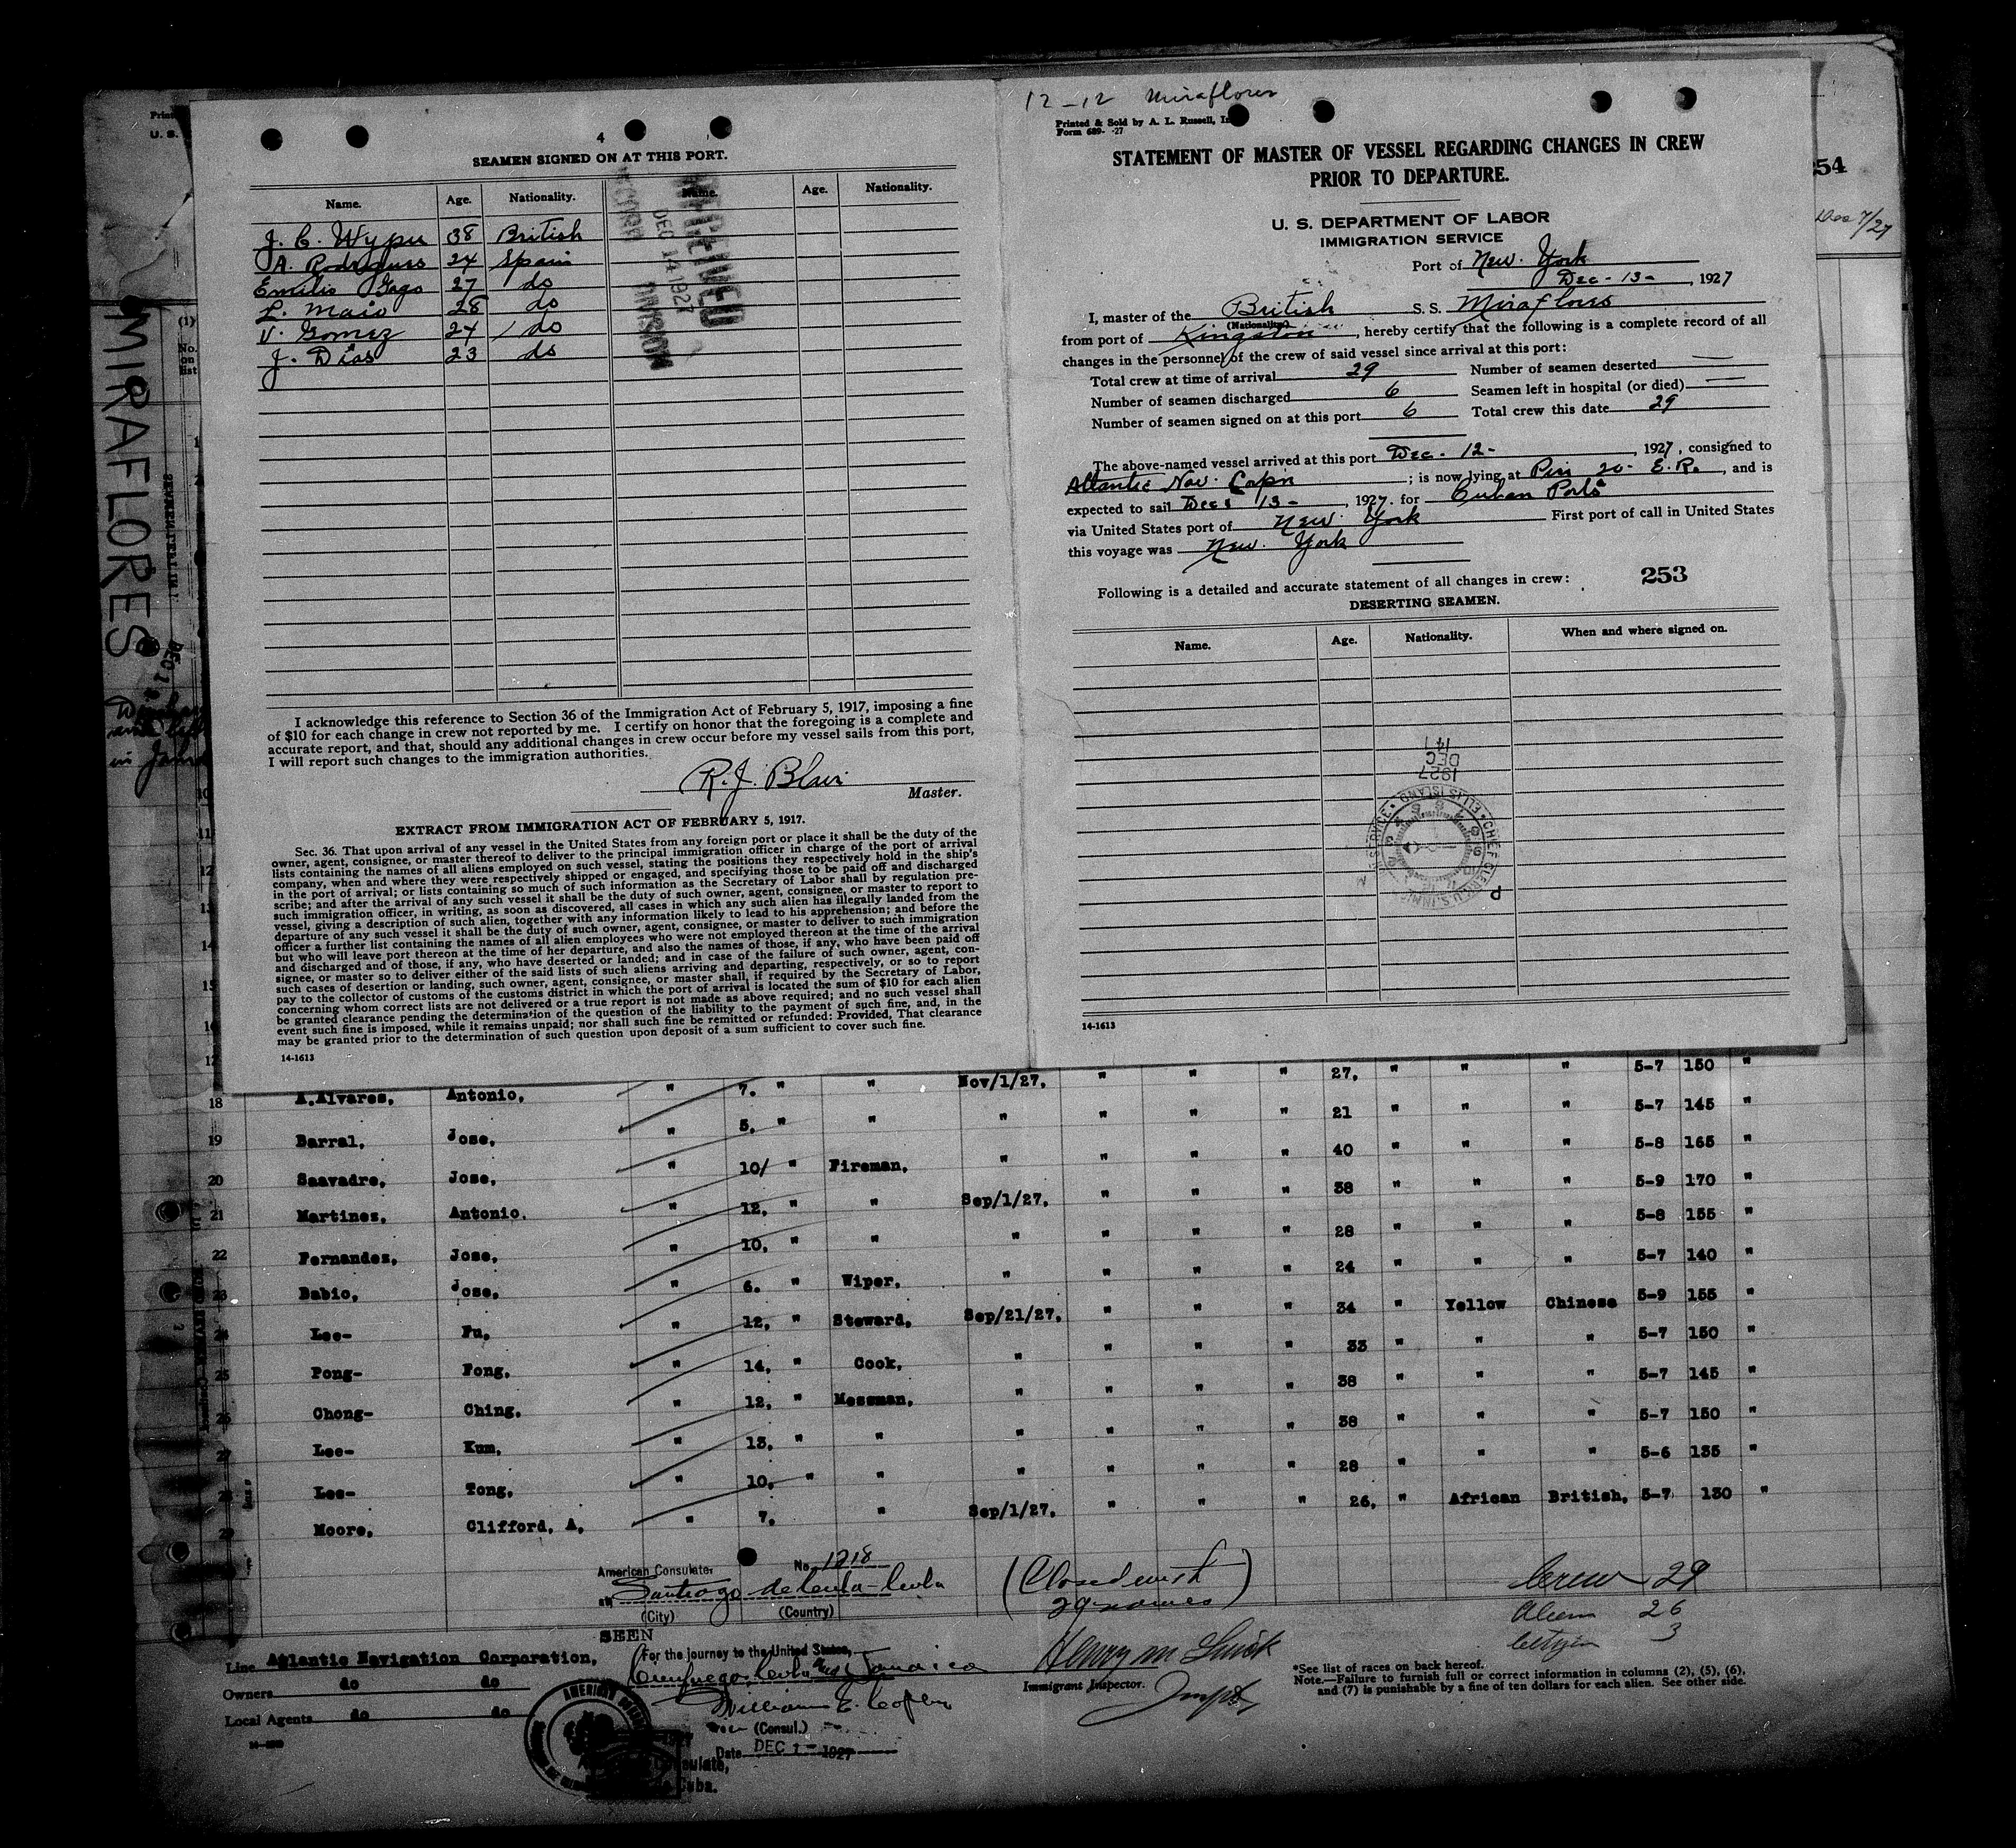 4
SEAMEN SIGNED ON AT THIS PORT.
Name. Age. Nationality. Name. Age. Nationality.
J. C. 38 British
A. 24 Spain
Emilio Gago 27 do
L. Maio 28 do
V. Gomez 24 do
J. Dias 23 do
RECEIVED
DEC 14 1927
DIVISION
I acknowledge this reference to Section 36 of the Immigration Act of February 5, 1917, imposing a fine
of $10 for each change in crew not reported by me. I certify on honor that the foregoing is a complete and
accurate report, and that, should any additional changes in crew occur before my vessel sails from this port,
I will report such changes to the immigration authorities.
R. J. Blair
Master.
EXTRACT FROM IMMIGRATION ACT OF FEBRUARY 5, 1917.
Sec. 36. That upon arrival of any vessel in the United States from any foreign port or place it shall be the duty of the
owner, agent, consignee, or master thereof to deliver to the principal immigration officer in charge of the port of arrival
lists containing the names of all aliens employed on such vessel, stating the positions they respectively hold in the ship's
company, when and where they were respectively shipped or engaged, and specifying those to be paid off and discharged
in the port of arrival; or lists containing so much of such information as the Secretary of Labor shall by regulation pre-
scribe; and after the arrival of any such vessel it shall be the duty of such owner, agent, consignee, or master to report to
such immigration officer, in writing, as soon as discovered, all cases in which any such alien has illegally landed from the
vessel, giving a description of such alien, together with any information likely to lead to his apprehension; and before the
departure of any such vessel it shall be the duty of such owner, agent, consignee, or master to deliver to such immigration
officer a further list containing the names of all alien employees who were not employed thereon at the time of the arrival
but who will leave port thereon at the time of her departure, and also the names of those, if any, who have been paid off
and discharged and of those, if any, who have deserted or landed; and in case of the failure of such owner, agent, con-
signee, or master so to deliver either of the said lists of such aliens arriving and departing, respectively, or so to report
such cases of desertion or landing, such owner, agent, consignee, or master shall, if required by the Secretary of Labor,
pay to the collector of customs of the customs district in which the port of arrival is located the sum of $10 for each alien
concerning whom correct lists are not delivered or a true report is not made as above required; and no such vessel shall
be granted clearance pending the determination of the question of the liability to the payment of such fine, and, in the
event such fine is imposed, while it remains unpaid; nor shall such fine be remitted or refunded: Provided, That clearance
may be granted prior to the determination of such question upon deposit of a sum sufficient to cover such fine.
14-1613
12-12 Miraflores
Printed & Sold by A. L. Russell,
Form 689- -27
STATEMENT OF MASTER OF VESSEL REGARDING CHANGES IN CREW
PRIOR TO DEPARTURE.
U. S. DEPARTMENT OF LABOR
IMMIGRATION SERVICE
Port of New York
Dec - 13 - , 1927
I, master of the British S. S. Miraflores
(Nationality)
from port of Kingston, hereby certify that the following is a complete record of all
changes in the personnel of the crew of said vessel since arrival at this port:
Total crew at time of arrival 29 Number of seamen deserted —
Number of seamen discharged 6 Seamen left in hospital (or died) —
Number of seamen signed on at this port 6 Total crew this date 29
The above-named vessel arrived at this port Dec - 12 - , 1927, consigned to
Atlantic Nav. Corpn ; is now lying at Pier 20 - E.R. , and is
expected to sail Dec 13 - , 1927. for Cuban Ports
via United States port of New York First port of call in United States
this voyage was New York
Following is a detailed and accurate statement of all changes in crew: 253
DESERTING SEAMEN.
Name. Age. Nationality. When and where signed on.
1927
DEC
14
ELLIS ISLAND
14-1613
254
Dec 7/27
MIRAFLORES
(1)
No.
on
list
18 A.Alvares, Antonio, " 7. " " Nov/1/27. " " " 27, " " " 5-7 150 "
19 Barral, Jose, " 5. " " " " " " 21 " " " 5-7 145 "
20 Saavadre, Jose, " 10/ " Fireman, " " " " 40 " " " 5-8 165 "
21 Martines, Antonio. " 12. " " Sep/1/27. " " " 38 " " " 5-9 170 "
22 Fernandez, Jose, " 10. " " " " " " 28 " " " 5-8 155 "
23 Babio, Jose, " 6. " Wiper, " " " " 24 " " " 5-7 140 "
24 Lee- Fu, " 12, " Steward, Sep/21/27, " " " 34 " Yellow Chinese 5-9 155 "
25 Pong- Fong, " 14, " Cook, " " " " 33 " " " 5-7 150 "
26 Chong- Ching, " 12, " Messman, " " " " 38 " " " 5-7 145 "
27 Lee- Kum, " 13, " " " " " " 38 " " " 5-7 150 "
28 Lee- Tong, " 10, " " " " " " 28 " " " 5-6 135 "
29 Moore, Clifford, A, " 7, " Sep/1/27. " " " 26, " African British, 5-7 130 "
American Consulate, No. 1218
at Santiago de Cuba - Cuba (Closed with
(City) (Country) 29 names)
Crew 29
Alien 26
Citizen 3
SEEN
For the journey to the United States,
Line Atlantic Navigation Corporation,
Cienfuegos, Cuba Jamaica
Owners do do
Local Agents do do
William E. Copley
(Consul.)
Date DEC 1 - 1927
Immigrant Inspector.
*See list of races on back hereof.
Note.—Failure to furnish full or correct information in columns (2), (5), (6),
and (7) is punishable by a fine of ten dollars for each alien. See other side.